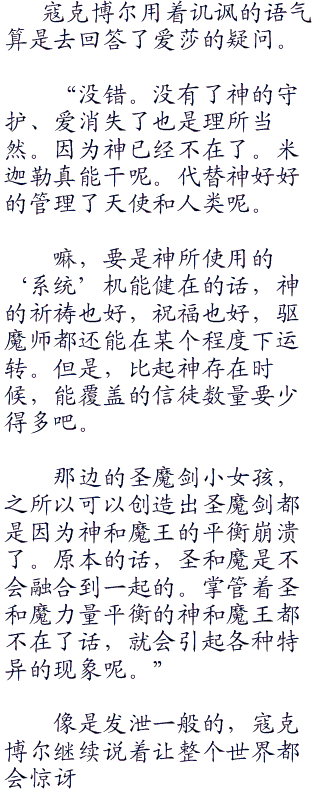 寇克博尔用着讥讽的语气
算是去回答了爱莎的疑问。
“没错。没有了神的守
护、爱消失了也是理所当
然。因为神已经不在了。米
迦勒真能干呢。代替神好好
的管理了天使和人类呢。
嘛，要是神所使用的
‘系统’机能健在的话，神
的祈祷也好，祝福也好，驱
魔师都还能在某个程度下运
转。但是，比起神存在时
候，能覆盖的信徒数量要少
得多吧。
那边的圣魔剑小女孩，
之所以可以创造出圣魔剑都
是因为神和魔王的平衡崩溃
了。原本的话，圣和魔是不
会融合到一起的。掌管着圣
和魔力量平衡的神和魔王都
不在了话，就会引起各种特
异的现象呢。”
像是发泄一般的，寇克
博尔继续说着让整个世界都
会惊讶